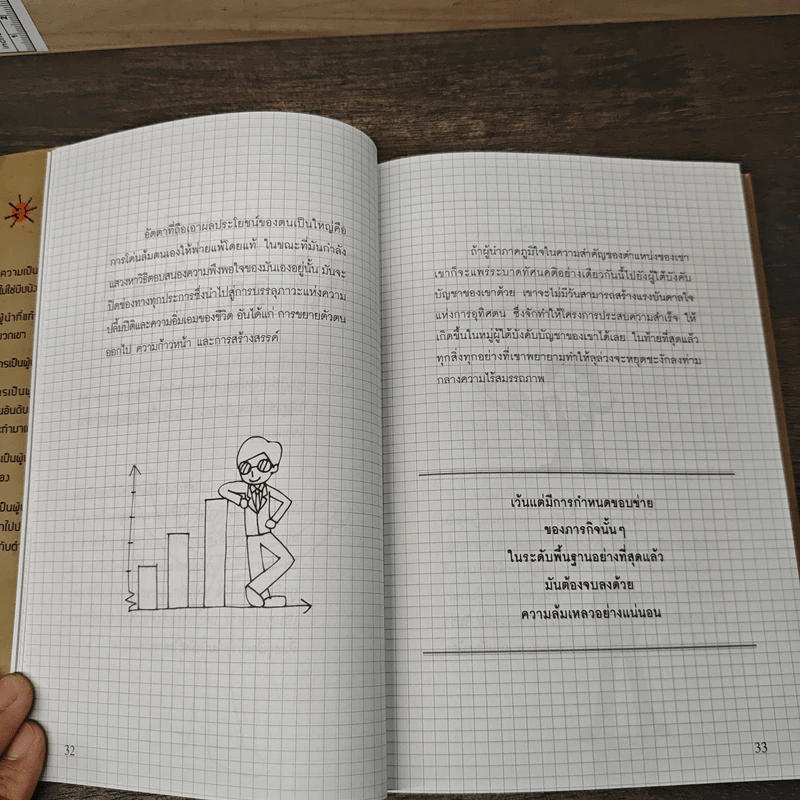 ความเป็น
ผู้นำที่แท้
วกเขา
ารเป็นผู้
อัตตาที่ถือเอาผลประโยชน์ของตนเป็นใหญ่คือ
การโค่นล้มตนเองให้พ่ายแพ้โดยแท้ ในขณะที่มันกำลัง
แสวงหาวิธีตอบสนองความพึงพอใจของมันเองอยู่นั้น มันจะ
ปิดช่องทางทุกประการซึ่งนำไปสู่การบรรลุภาวะแห่งความ
ปลื้มปีติและความอิ่มเอมของชีวิต อันได้แก่ การขยายตัวตน
ออกไป ความก้าวหน้า และการสร้างสรรค์
32
ถ้าผู้นำภาคภูมิใจในความสำคัญของตำแหน่งของเขา
เขาก็จะแพร่ระบาดทัศนคติอย่างเดียวกันนี้ไปยังผู้ใต้บังคับ
บัญชาของเขาด้วย เขาจะไม่มีวันสามารถสร้างแรงบันดาลใจ
แห่งการอุทิศตน ซึ่งจักทำให้โครงการประสบความสำเร็จ ให้
เกิดขึ้นในหมู่ผู้ใต้บังคับบัญชาของเขาได้เลย ในท้ายที่สุดแล้ว
ทุกสิ่งทุกอย่างที่เขาพยายามทำให้ลุล่วงจะหยุดชะงักลงท่าม
กลางความไร้สมรรถภาพ
เว้นแต่มีการกำหนดขอบข่าย
ของภารกิจนั้นๆ
ในระดับพื้นฐานอย่างที่สุดแล้ว
มันต้องจบลงด้วย
ความล้มเหลวอย่างแน่นอน
33